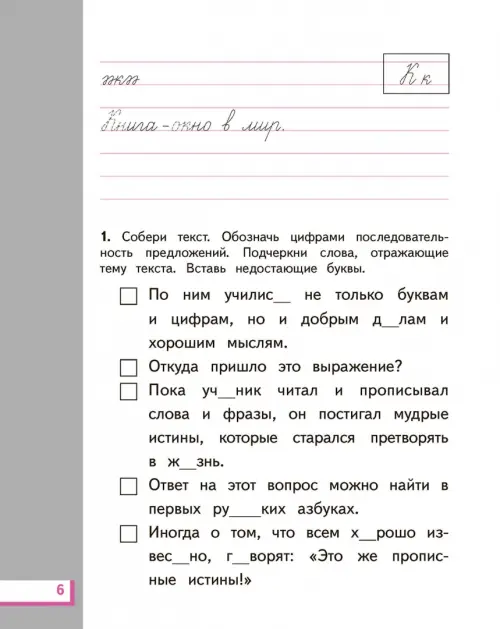 жжж
К к
Книга - окно в мир.
1. Собери текст. Обозначь цифрами последователь-
ность предложений. Подчеркни слова, отражающие
тему текста. Вставь недостающие буквы.
По ним училис__ не только буквам
и цифрам, но и добрым д__лам и
хорошим мыслям.
Откуда пришло это выражение?
Пока уч__ник читал и прописывал
слова и фразы, он постигал мудрые
истины, которые старался претворять
в ж__знь.
Ответ на этот вопрос можно найти в
первых ру____ких азбуках.
Иногда о том, что всем х__рошо из-
вес__но, г__ворят: «Это же пропис-
ные истины!»
6